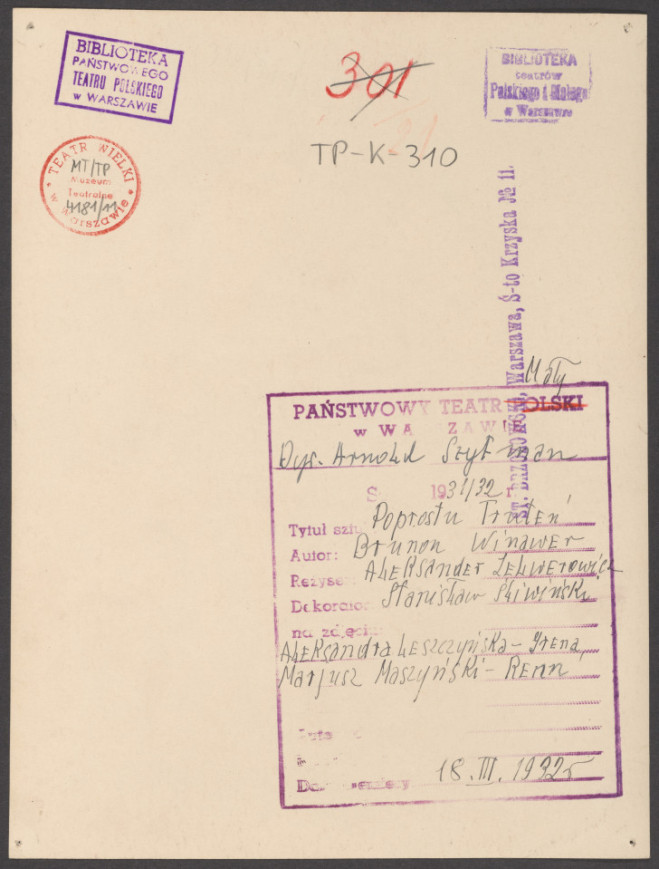 BIBLIOTEKA
PAŃSTWOWEGO
TEATRU POLSKIEGO
w WARSZAWIE
301
BIBLIOTEKA
teatrów
Polskiego i Małego
w Warszawie
TP-K-310
TEATR WIELKI
MT/TP
Muzeum
Teatralne
4181/11
w Warszawie
Warszawa, Ś-to Krzyska № 11.
Mały
PAŃSTWOWY TEATR POLSKI
w WA ZAWIE
Dyr. Arnold Szyfman
S 1931/32 r
Tytuł sztu Poprostu Truteń
Autor: Brunon Winawer
Reżyser Aleksander Zelwerowicz
Dekorator Stanisław Śliwiński
na zdjęciu
Aleksandra Leszczyńska - Irena,
Marjusz Maszyński - Renn
18. III. 1932r